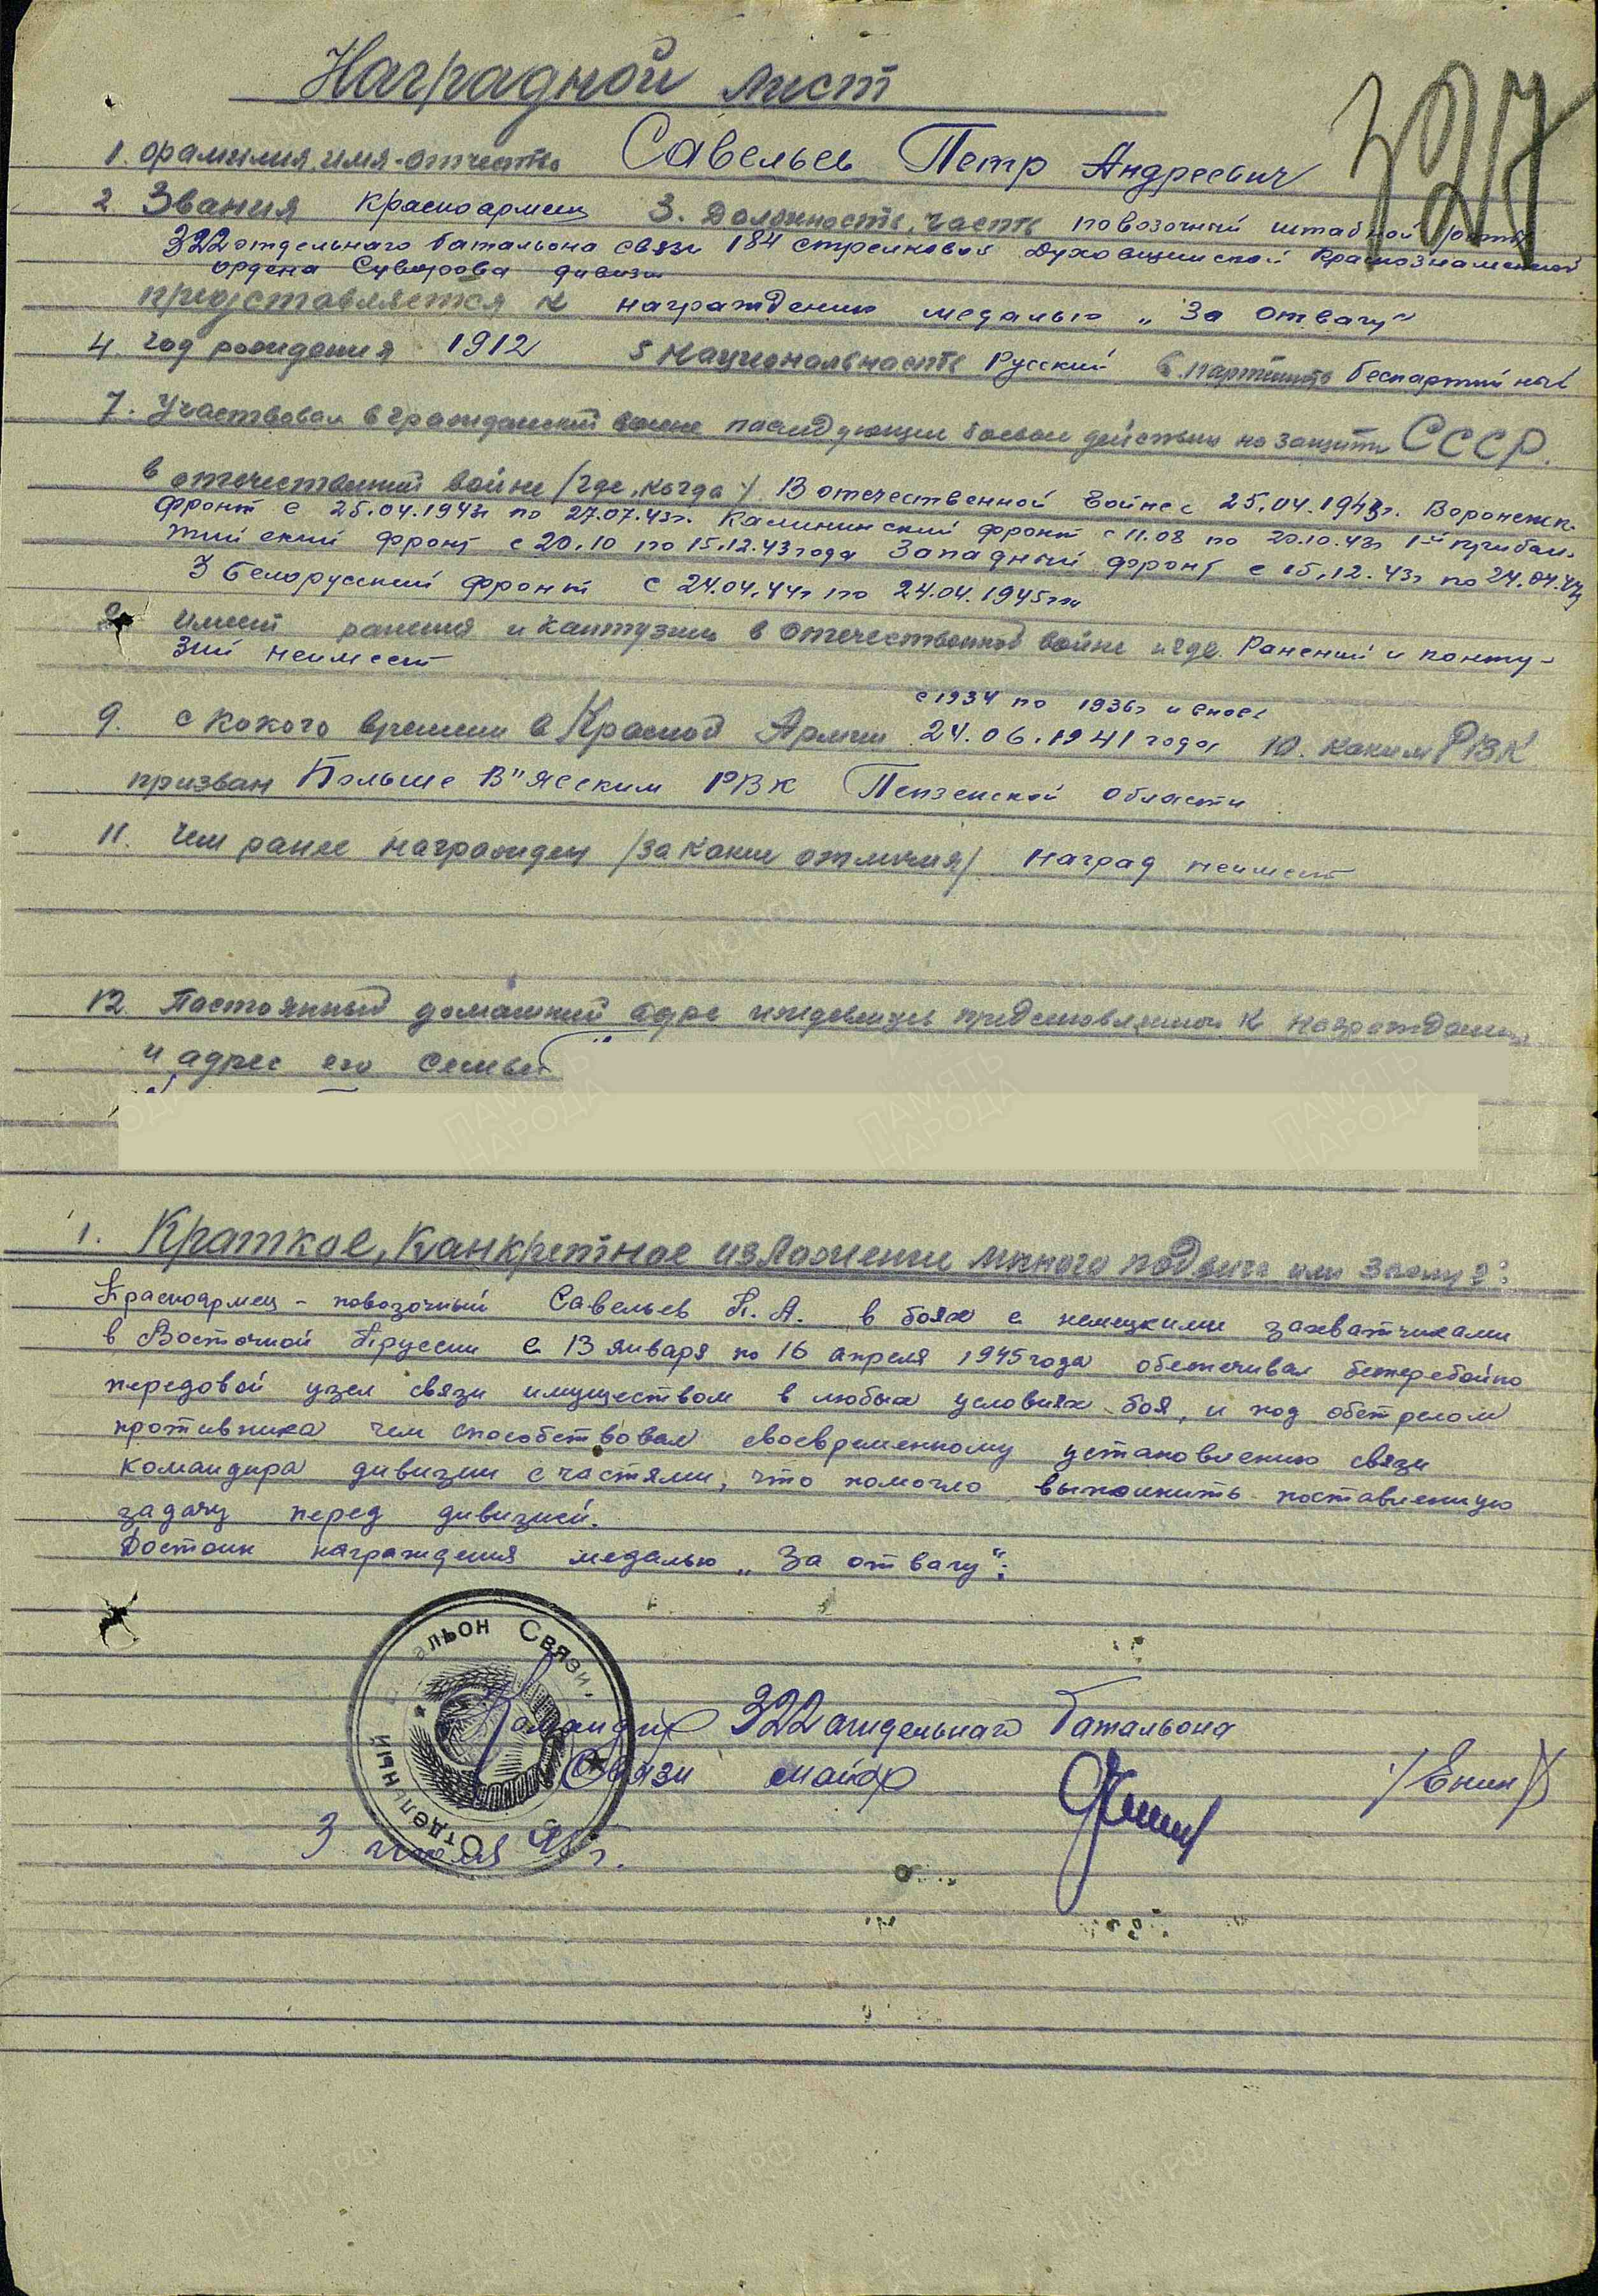 Наградной лист
327
1. Фамилия, имя-отчество Савельев Петр Андреевич
2. Звания Красноармеец 3. Должность, часть повозочный штабной роты
322 отдельнаго батальона связи 184 стрелковой Духовщинской Краснознаменной
ордена Суворова дивизии
представляется к награждению медалью „За отвагу“
4. Год рождения 1912 5 Национальность Русский 6. партийность беспартийный
7. Участвовал в гражданской войне последующие боевые действия по защите СССР.
в отечественной войне /где, когда/ В отечественной войне с 25.04.1943г. Воронежск.
фронт с 25.04.1943г по 27.07.43г. Калининский фронт с 11.08 по 20.10.43г 1-й прибал-
тийский фронт с 20.10 по 15.12.43 года Западный фронт с 15.12.43г по 24.04.44г
3 Белорусский фронт с 24.04.44г по 24.04.1945г
8 имеет ранения и контузии в отечественной войне и где. Ранений и конту-
зий неимеет
с 1934 по 1936г и снова
9. с кокого времени в Красной Армии 24.06.1941 года 10. каким РВК
призван Больше В"ясским РВК Пензенской области
11. Чем ранее награжден /за какие отличия/ Наград неимеет
12. Постоянный домашний адрес представляемого к награждению
и адрес его семьи
1. Краткое, канкретное изложение личного подвига или заслуг:
Красноармеец - повозочный Савельев П. А. в боях с немецкими захватчиками
в Восточной Пруссии с 13 января по 16 апреля 1945 года обеспечивал бесперебойно
передовой узел связи имуществом в любых условиях боя, и под обстрелом
противника чем способствовал своевременному установлению связи
командира дивизии с частями, что помогло выполнить поставленную
задачу перед дивизией.
Достоин награждения медалью „За отвагу“.
Отдельный Батальон Связи
Командир 322 отдельнаго батальона
Связи майор /Енин/
3 45 г.